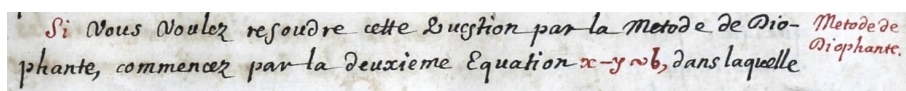 Si Vous Voulez resoudre cette Question par la Metode de Dio-
phante, commencez par la deuxieme Equation x-y ~ b, dans laquelle
Metode de
Diophante.